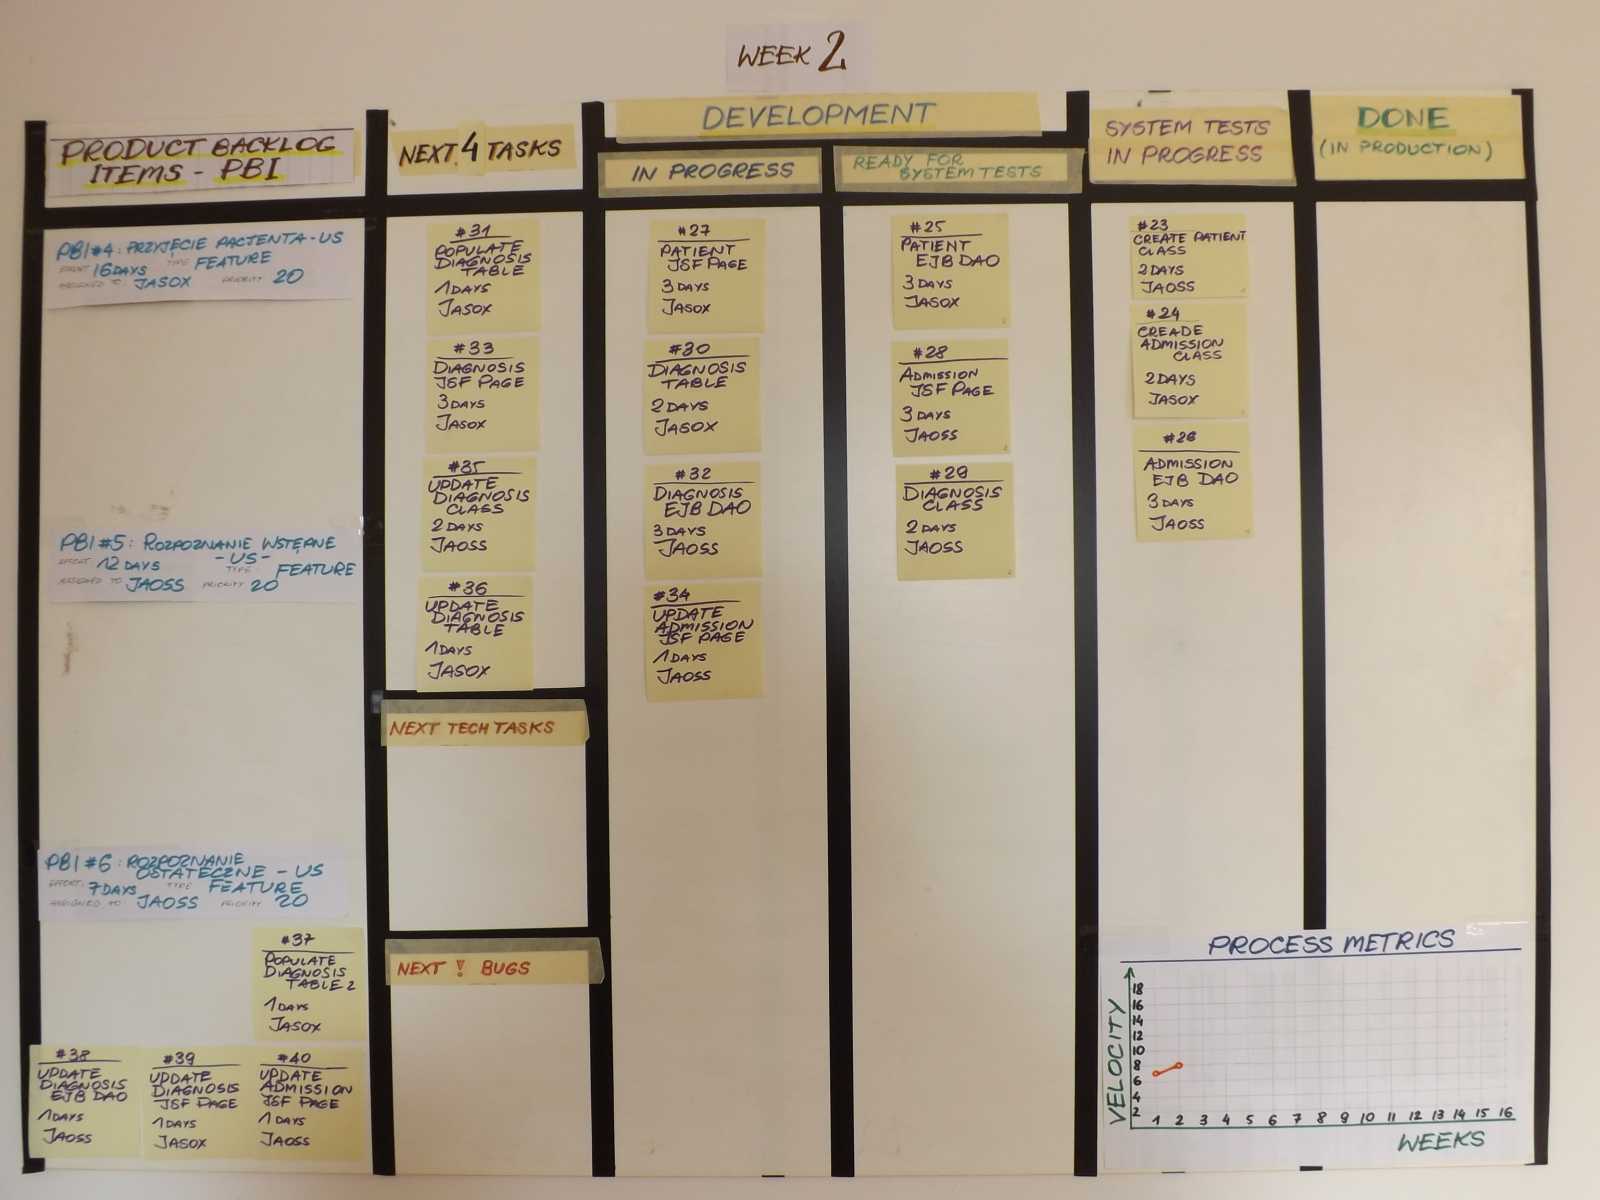 WEEK 2
PRODUCT BACKLOG
ITEMS - PBI
NEXT 4 TASKS
DEVELOPMENT
IN PROGRESS
READY FOR
SYSTEM TESTS
SYSTEM TESTS
IN PROGRESS
DONE
(IN PRODUCTION)
PBI #4: PRZYJĘCIE PACJENTA - US
EFFORT 16 DAYS TYPE FEATURE
ASSIGNED TO: JASOX PRIORITY 20
PBI #5: ROZPOZNANIE WSTĘPNE
- US -
EFFORT 12 DAYS TYPE FEATURE
ASSIGNED TO JAOSS PRIORITY 20
PBI #6: ROZPOZNANIE
OSTATECZNE - US
EFFORT: 7 DAYS TYPE FEATURE
ASSIGNED TO JAOSS PRIORITY 20
#37
POPULATE
DIAGNOSIS
TABLE 2
1 DAYS
JASOX
#38
UPDATE
DIAGNOSIS
EJB DAO
1 DAYS
JAOSS
#39
UPDATE
DIAGNOSIS
JSF PAGE
1 DAYS
JASOX
#40
UPDATE
ADMISSION
JSF PAGE
1 DAYS
JAOSS
#31
POPULATE
DIAGNOSIS
TABLE
1 DAYS
JASOX
#33
DIAGNOSIS
JSF PAGE
3 DAYS
JASOX
#35
UPDATE
DIAGNOSIS
CLASS
2 DAYS
JAOSS
#36
UPDATE
DIAGNOSIS
TABLE
1 DAYS
JASOX
NEXT TECH TASKS
NEXT ! BUGS
#27
PATIENT
JSF PAGE
3 DAYS
JASOX
#30
DIAGNOSIS
TABLE
2 DAYS
JASOX
#32
DIAGNOSIS
EJB DAO
3 DAYS
JAOSS
#34
UPDATE
ADMISSION
JSF PAGE
1 DAYS
JAOSS
#25
PATIENT
EJB DAO
3 DAYS
JASOX
#28
ADMISSION
JSF PAGE
3 DAYS
JAOSS
#29
DIAGNOSIS
CLASS
2 DAYS
JAOSS
#23
CREATE PATIENT
CLASS
2 DAYS
JAOSS
#24
CREADE
ADMISSION
CLASS
2 DAYS
JASOX
#26
ADMISSION
EJB DAO
3 DAYS
JAOSS
PROCESS METRICS
VELOCITY
18
16
14
12
10
8
6
4
2
1 2 3 4 5 6 7 8 9 10 11 12 13 14 15 16
WEEKS